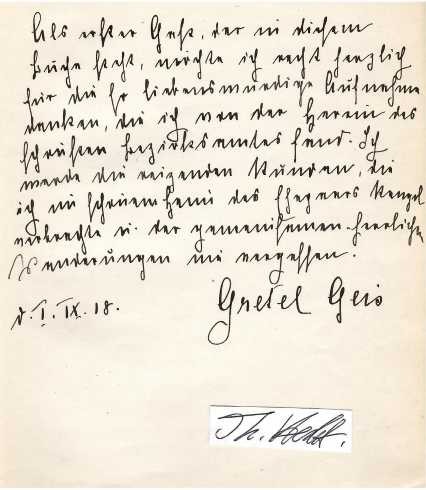 Als erster Gast, der in diesem
Buche steht, möchte ich recht herzlich
für die so liebenswürdige Aufnahme
danken, die ich von der Herrin des
schönsten Bezirksamtes fand. Ich
werde die reizenden Stunden, die
ich im schönen Heim des
verbrachte u. der gemeinsamen herrlichen
Wanderungen nie vergessen.
d. I. IX. 18.
Gretel Geis
Th.